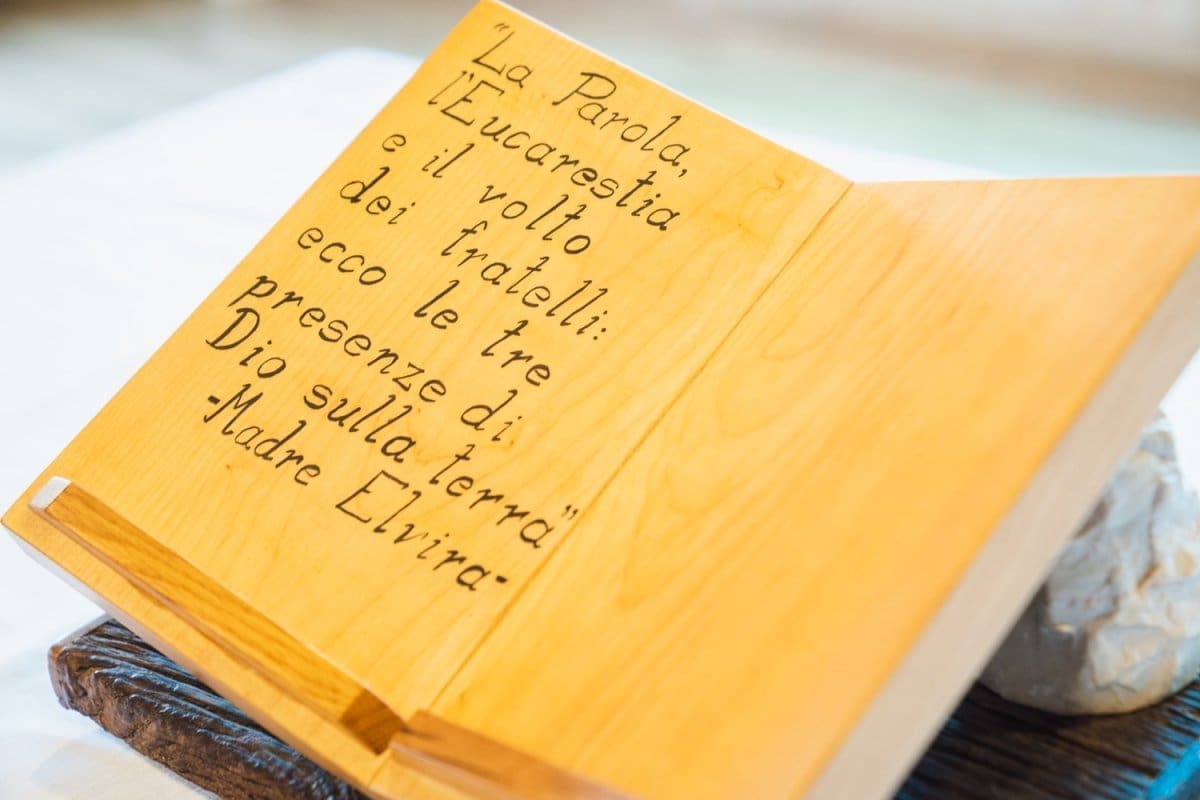 "La Parola,
l'Eucarestia
e il volto
dei fratelli:
ecco le tre
presenze di
Dio sulla terra"
-Madre Elvira-